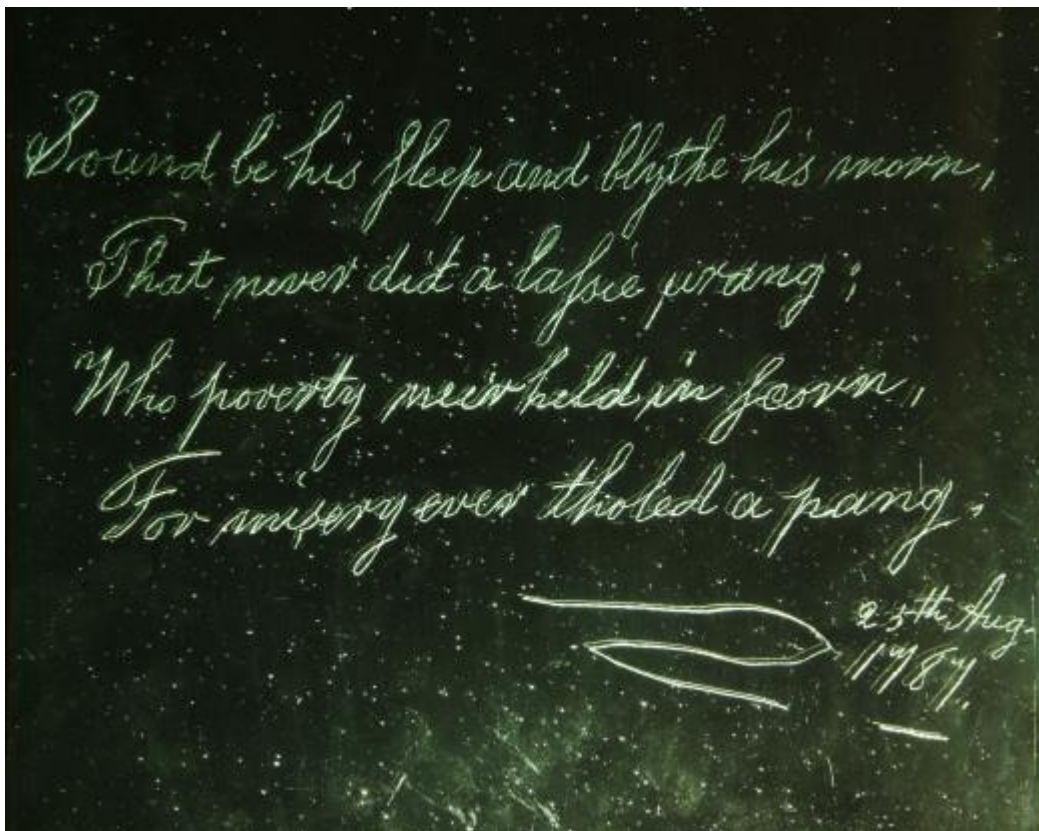 Sound be his ſleep and blythe his morn,
That never did a laſsie wrang;
Who poverty neir held in ſcorn,
For misery ever tholed a pang.
25th Aug.
1787.